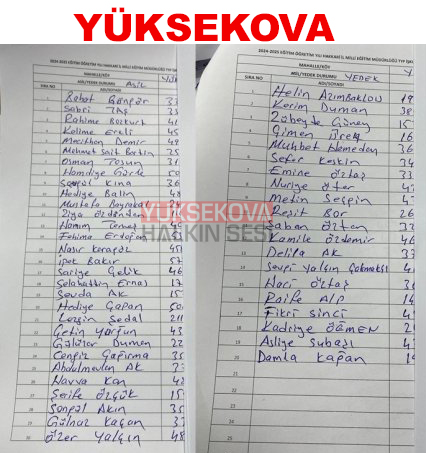 YÜKSEKOVA
2024-2025 EĞİTİM ÖĞRETİM YILI HAKKARİ İL MİLLİ EĞİTİM MÜDÜRLÜĞÜ TYP
MAHALLE/KÖY
ASİL/YEDEK DURUMU Asil
SIRA NO ADI/SOYADI
Sabri TAŞ
Rahime Bozkurt 41
Kelime Erkli 45
Mecithan Demir 49
Mehmet Sait Barkin 25
Osman Tosun 31
Hamdiye Gürde 50
Songül Kına 36
Hediye Balin 49
Mustafa Bayrakdar
Ziya Özdinden
Hanım Temel
Fehime Erdoğan
Nasır Karagöz
İpek Bakır 57
Sariye Çelik 46
Selahattin Ernas 17
Sevda AK 15
Hediye Çapan 50
Rezgin Sedal 211
Çetin Yorgun 43
Gülüzar Duman 22
Cengiz Çapırma 35
Abdulmevlan AK 33
Havva Kan 42
Şerife Özgük 15
Songül Akın 35
Gülnaz Kaçan 37
Özer Yalçın 48
YÜKSEKOVA
HALKIN SESİ
2024-2025 EĞİTİM ÖĞRETİM YILI HAKKARİ İL MİLLİ EĞİTİM MÜDÜRLÜĞÜ TYP
MAHALLE/KÖY
ASİL/YEDEK DURUMU YEDEK
SIRA NO ADI/SOYADI
1 Helin
2 Kerim Duman 38
3 Zübeyde Güney 15
4 Çimen 16
5 Muhbet Hameden 36
6 Sefer Keskin 34
7 Emine Öztaş 33
8 Nuriye
9 Metin Seçkin
10 Reşit Bor 26
11 Şaban Öztan 33
12 Kamile Özdemir 46
13 Delila AK 33
14 Şevgi Yalçın
15 Naci Öztaş
16 Raife Alp 14
17 Fikri Sinci
18 Kadriye ÖĞMEN
19 Asliye Subaşı
20 Damla Kapan
21
22
23
24
25